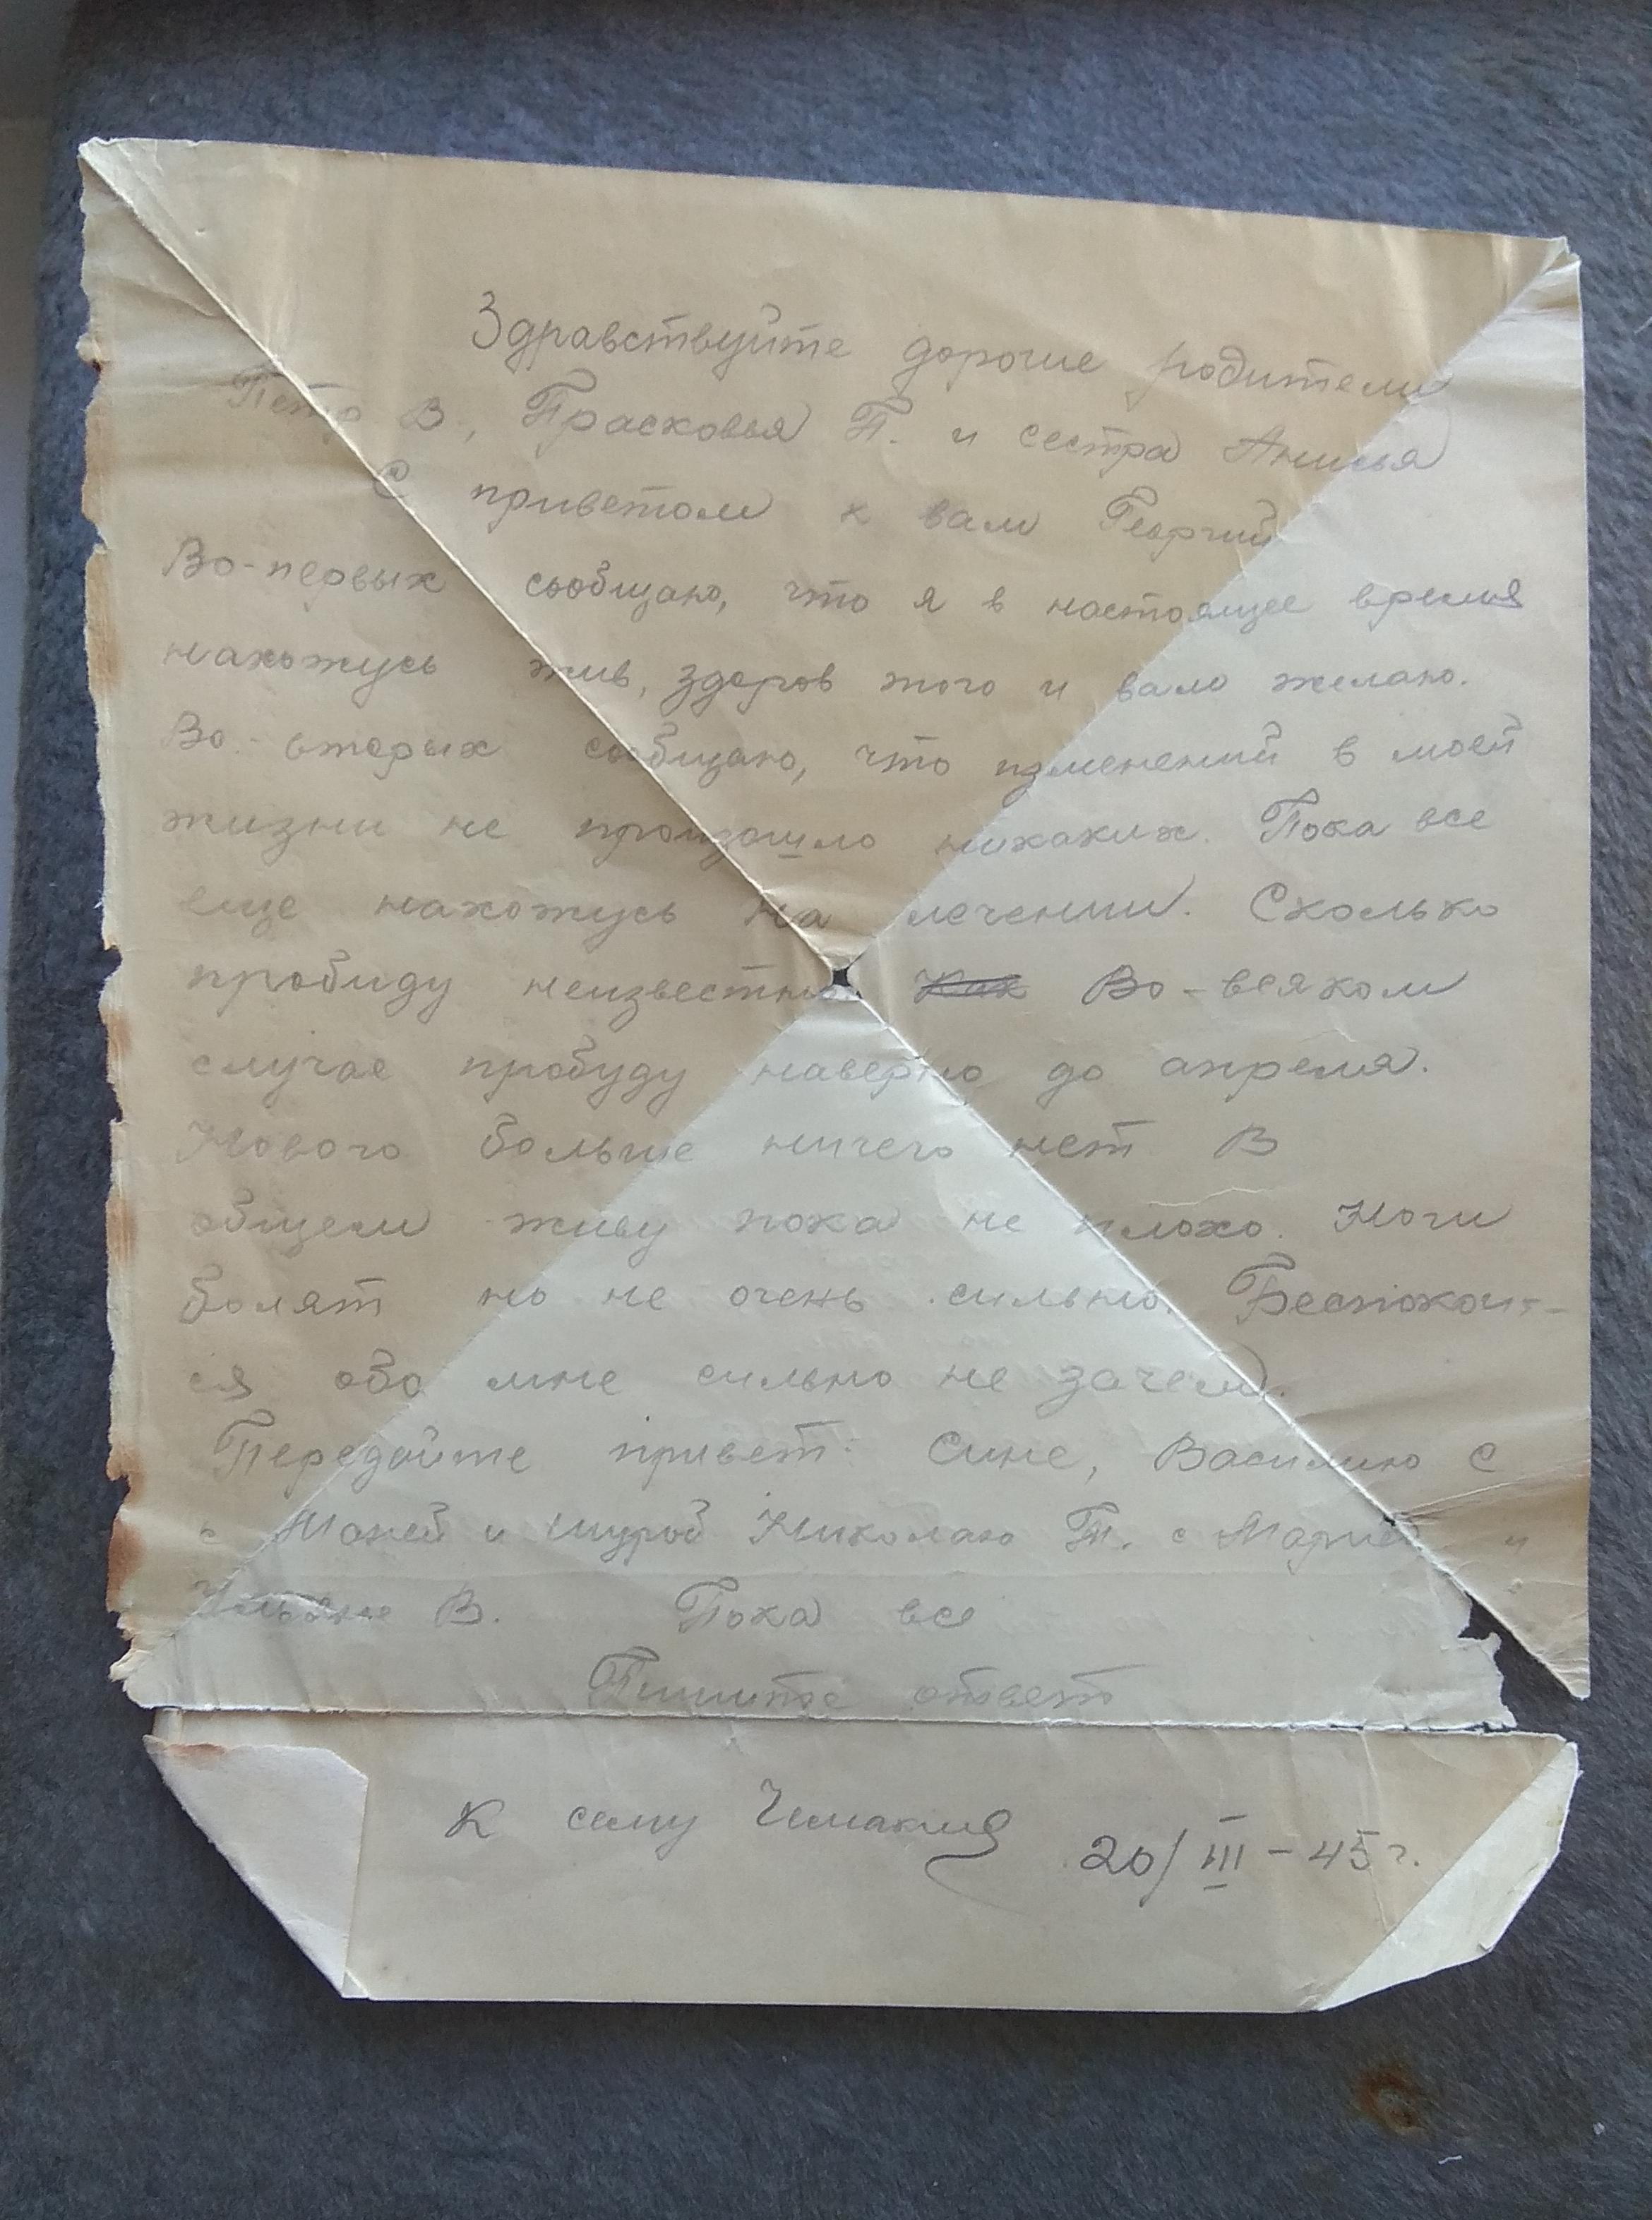 Здравствуйте дорогие родители
Петр В., Прасковья П. и сестра Анисья
С приветом к вам Георгий
Во-первых сообщаю, что я в настоящее время
нахожусь жив, здоров того и вам желаю.
Во-вторых сообщаю, что изменений в моей
жизни не произошло никаких. Пока все
еще нахожусь на лечении. Сколько
пробиду неизвестно Как Во-всяком
случае пробуду наверно до апреля.
Нового больше ничего нет В
общем живу пока не плохо. Ноги
болят но не очень сильно. Беспокоит-
ся обо мне сильно не зачем.
Передайте привет: Сине, Василию С
с Маней и Шурой Николаю Т. с Марией и
В. Пока все
Пишите ответ
К сему
20/III-45 г.